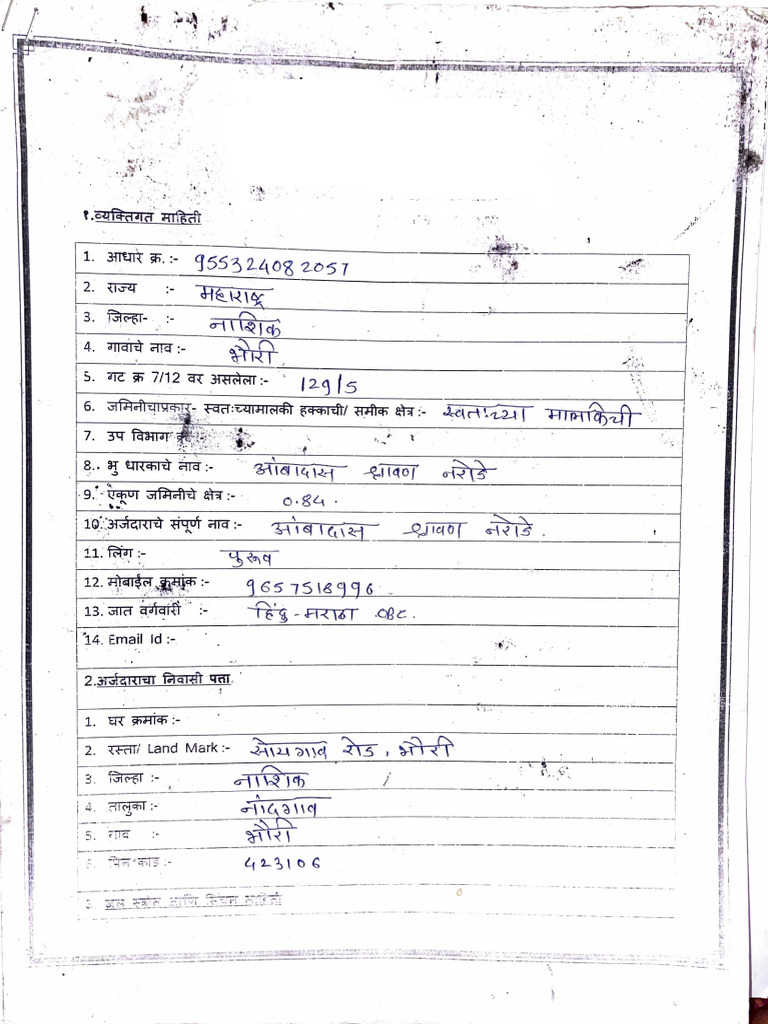 १.व्यक्तिगत माहिती
1. आधार क्र. :- 955324082057
2. राज्य :- महाराष्ट्र
3. जिल्हा- :- नाशिक
4. गावाचे नाव :- भौरी
5. गट क्र 7/12 वर असलेला :- 129/5
6. जमिनीचाप्रकार- स्वतःच्यामालकी हक्काची/ समीक क्षेत्र :- स्वतःच्या मालकिची
7. उप विभाग क्र
8. भु धारकाचे नाव :- आंबादास श्रावण नरोडे
9. ऐकूण जमिनीचे क्षेत्र :- 0.84.
10. अर्जदाराचे संपूर्ण नाव :- आंबादास श्रावण नरोडे.
11. लिंग :- पुरूष
12. मोबाईल क्रमांक :- 9657518996
13. जात वर्गवारी :- हिंदु - मराठा OBC.
14. Email Id :-
2.अर्जदाराचा निवासी पत्ता
1. घर क्रमांक :-
2. रस्ता/ Land Mark :- सोयगाव रोड, भौरी
3. जिल्हा :- नाशिक
4. तालुका :- नांदगाव
5. गाव :- भौरी
6. पिन कोड :- 423106
3. जल स्त्रोत आणि सिंचन माहिती